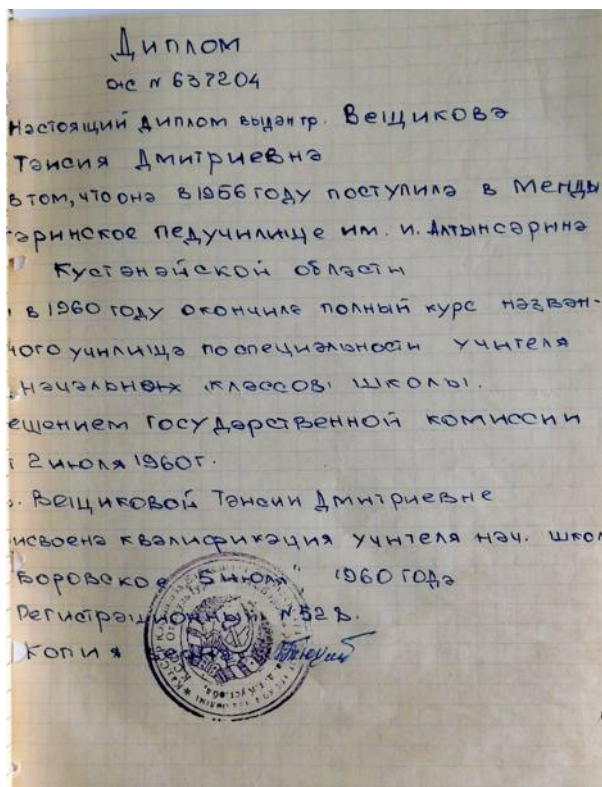 Диплом
ОС N 637204
Настоящий диплом выдан гр. Вещикова
Таисия Дмитриевна
в том, что она в 1956 году поступила в Менды
гаринское педучилище им. И. Алтынсарина
Кустанайской области
в 1960 году окончила полный курс назван-
ного училища по специальности учителя
начальных классов школы.
ешением Государственной комиссии
2 июля 1960г.
Вещиковой Таисии Дмитриевне
исвоена квалификация учителя нач. школ
Боровское "5 июля" 1960 года
Регистрационный N 528.
Копия верна